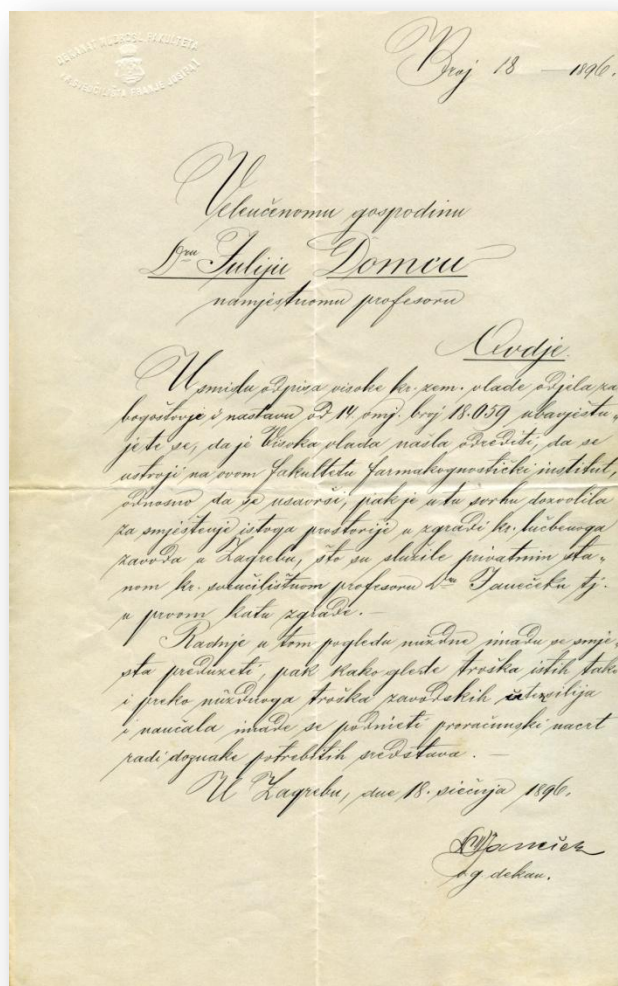 DEKANAT MUDROSL. FAKULTETA
Broj 18 — 1896.
Veleučenomu gospodinu
Dru Juliju Domcu
namjestnomu profesoru
Ovdje.
U smislu odpisa visoke kr. zem. vlade odjela za
bogoštovje i nastavu od 14 omj. broj 18.059 ubavještu„
jete se, da je Visoka vlada našla odrediti, da se
ustroji na ovom fakultetu farmakognostički institut,
odnosno da se usavrši, pak je u tu svrhu dozvolila
za smještenje istoga prostorije u zgradi kr. lučbenoga
zavoda u Zagrebu, što su služile privatnim sta„
nom kr. sveučilištnom profesoru Dru Janečeku tj.
u prvom katu zgrade. —
Radnje u tom pogledu nuždne imadu se smje„
sta preduzeti, pak kako glede troška istih tako
i preko nuždnoga troška zavodskih utensilija
i naučala imade se podnieti proračunski nacrt
radi doznake potrebitih sredstava. —
U Zagrebu, dne 18. siečnja 1896.
Janeček
t. g dekan.